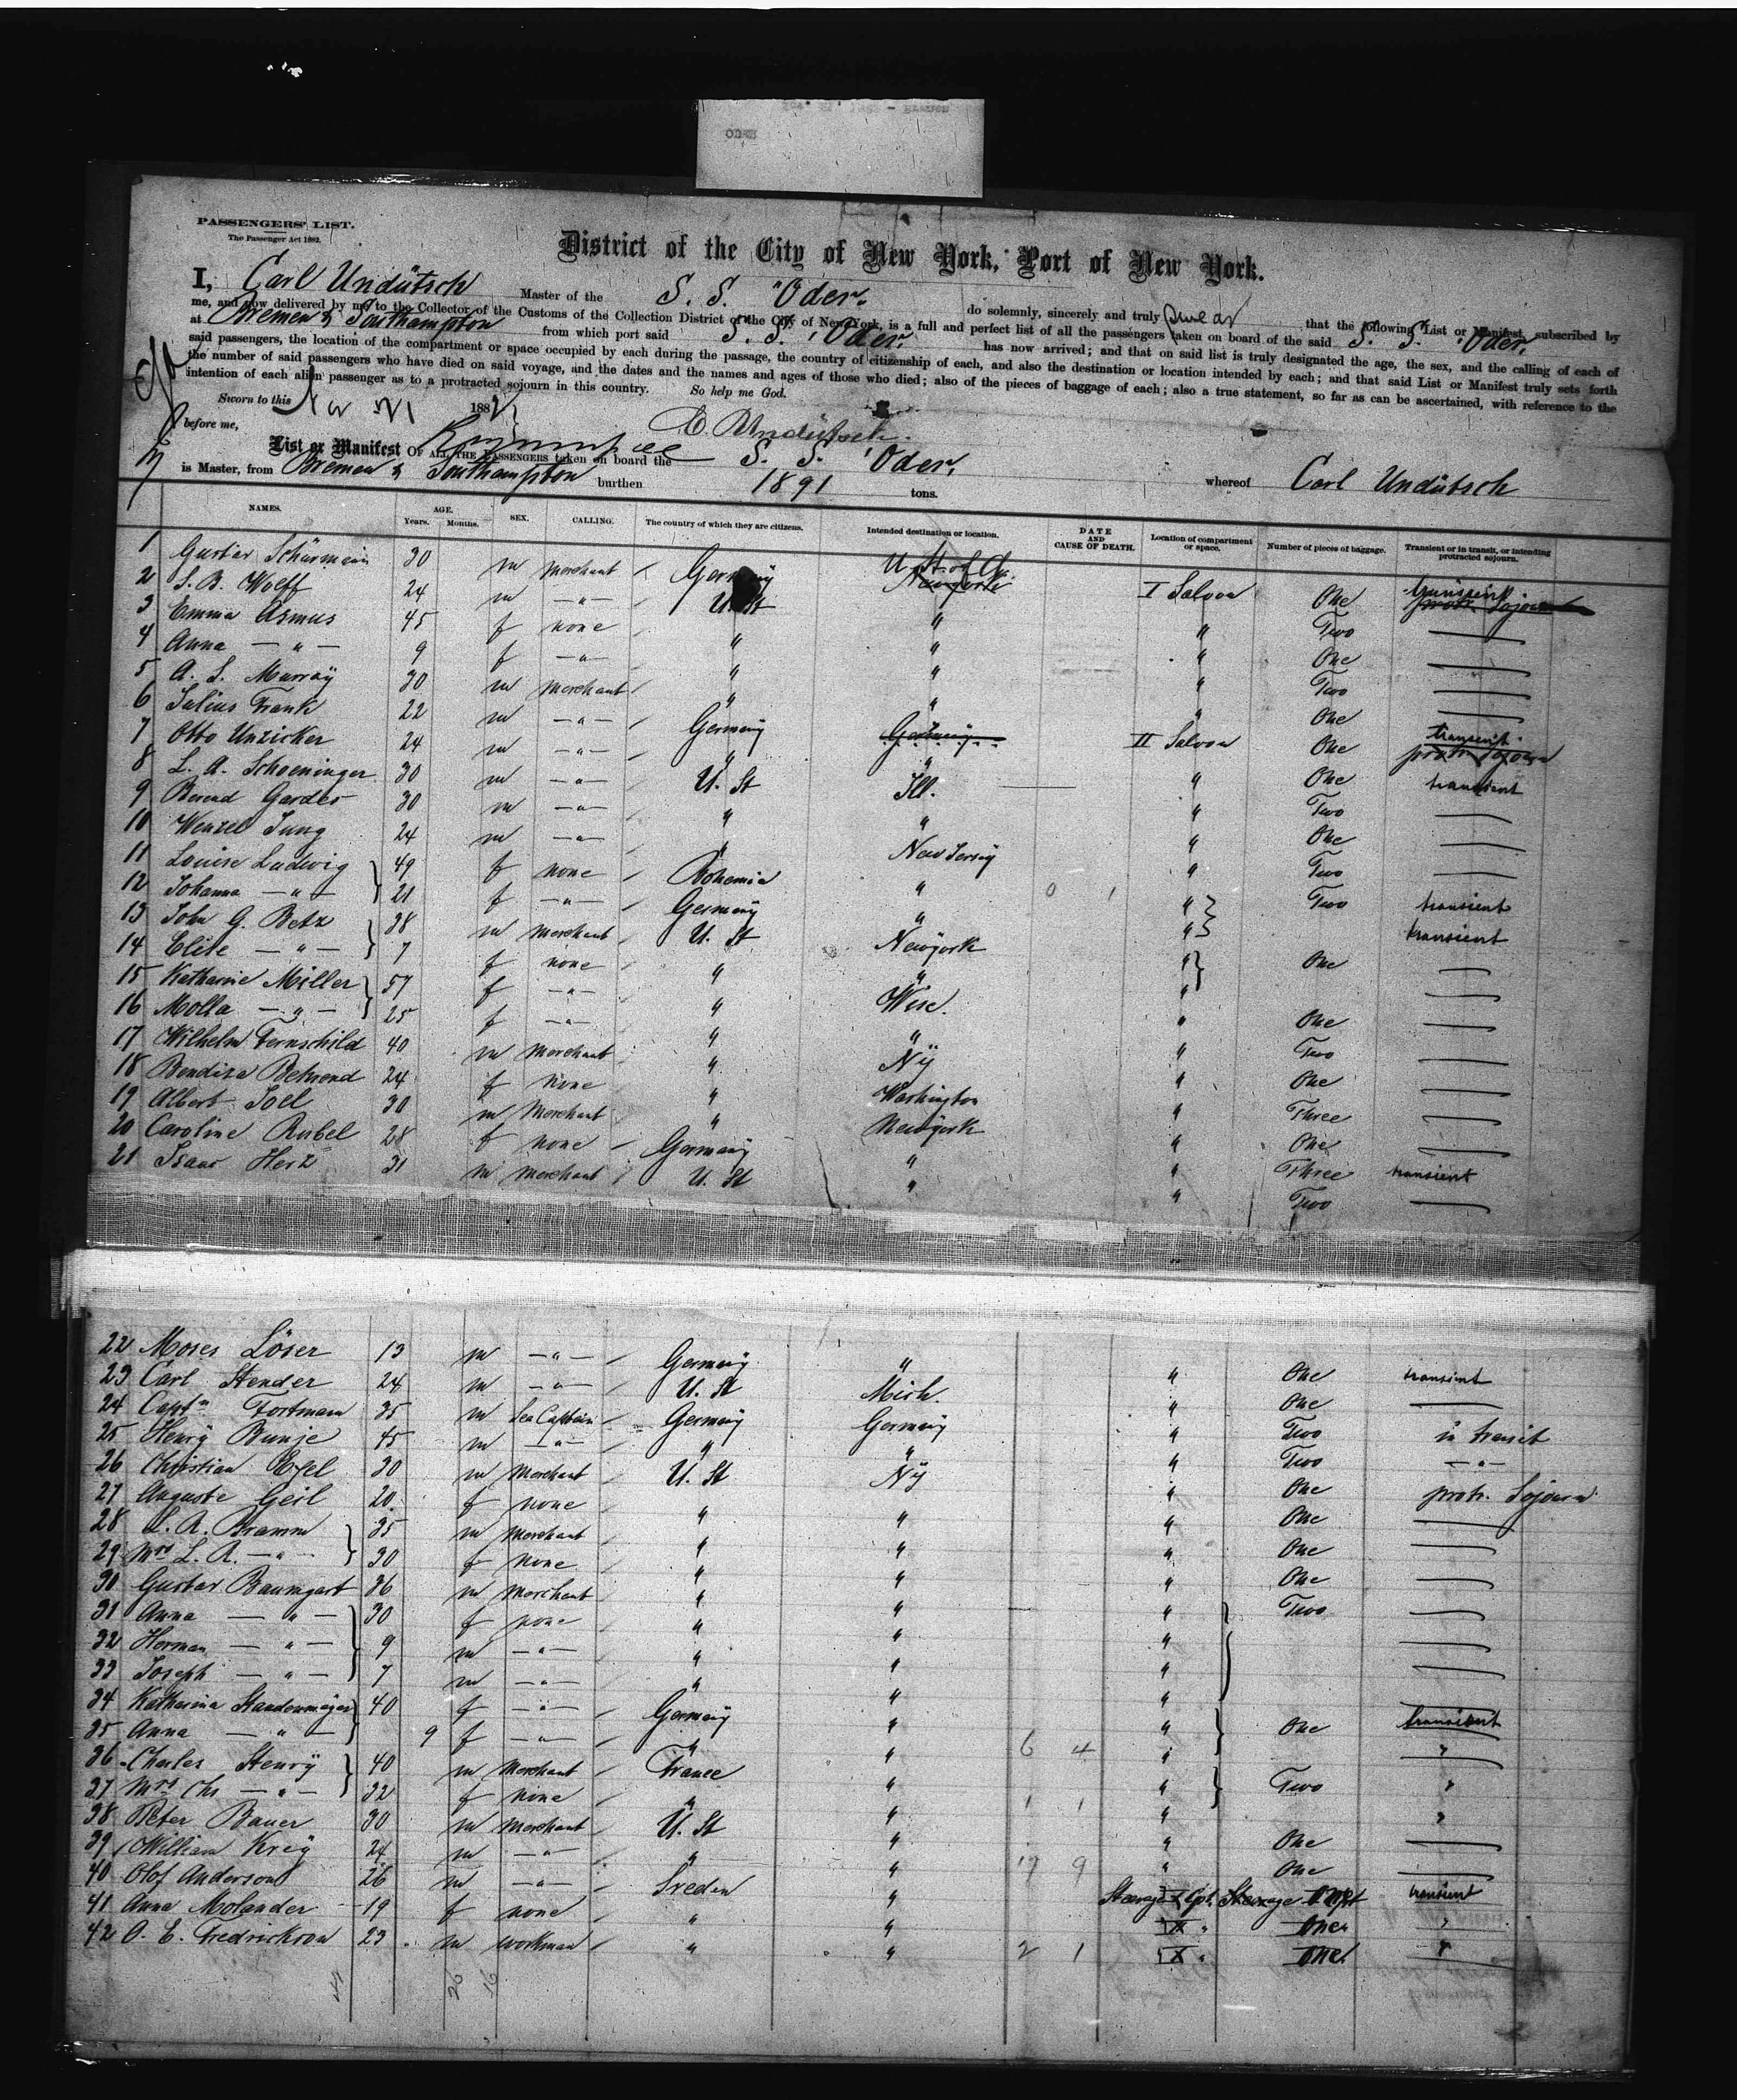 ODER
PASSENGERS' LIST.
The Passenger Act 1882.
District of the City of New York, Port of New York.
I, Carl Undütsch Master of the S. S. "Oder" do solemnly, sincerely and truly swear that the following List or Manifest, subscribed by
me, and now delivered by me to the Collector of the Customs of the Collection District of the City of New York, is a full and perfect list of all the passengers taken on board of the said S. S. "Oder"
at Bremen & Southampton from which port said S. S. "Oder" has now arrived; and that on said list is truly designated the age, the sex, and the calling of each of
said passengers, the location of the compartment or space occupied by each during the passage, the country of citizenship of each, and also the destination or location intended by each; and that said List or Manifest truly sets forth
the number of said passengers who have died on said voyage, and the dates and the names and ages of those who died; also of the pieces of baggage of each; also a true statement, so far as can be ascertained, with reference to the
intention of each alien passenger as to a protracted sojourn in this country. So help me God.
Sworn to this 188
before me, C. Undütsch
List or Manifest OF ALL THE PASSENGERS taken on board the S. S. "Oder" whereof Carl Undütsch
is Master, from Bremen & Southampton burthen 1891 tons.
NAMES. AGE. Years. Months. SEX. CALLING. The country of which they are citizens. Intended destination or location. DATE AND CAUSE OF DEATH. Location of compartment or space. Number of pieces of baggage. Transient or in transit, or intending protracted sojourn.
1 Gustav Schürmann 30 m Merchant Germany U. St. of A. Newyork I Saloon One transient protr. Sojourn
2 S. B. Wolff 24 m —"— U. St " " Two —
3 Emma Asmus 45 f none " " " One —
4 Anna —"— 9 f —"— " " " Two —
5 A. S. Murray 30 m Merchant " " " One —
6 Julius Frank 22 m —"— Germany Germany II Saloon One transient protr. Sojourn
7 Otto Unzicker 24 m —"— " " " One transient
8 L. A. Schoeninger 30 m —"— U. St Ill. " Two —
9 Berend Gardes 30 m —"— " " " One —
10 Wenzel Jung 24 m —"— " New Jersey " Two —
11 Louise Ludwig 49 f none Bohemia " " Two transient
12 Johanna —"— 21 f —"— Germany " " transient
13 John G. Betz 38 m Merchant U. St Newyork " One —
14 Elise —"— 7 f none " " " —
15 Katharine Miller 57 f —"— " Wisc. " One —
16 Molla —"— 25 f —"— " " " Two —
17 Wilhelm Fernschild 40 m Merchant " Ny " One —
18 Bendixa Behrend 24 f none " Washington " Three —
19 Albert Joel 30 m Merchant " Newyork " One —
20 Caroline Rubel 28 f none Germany " " Three transient
21 Isaac Herz 31 m Merchant U. St " " Two —
22 Moses Löser 13 m —"— Germany " " One transient
23 Carl Stender 24 m —"— U. St Mich. " One —
24 Captn Fortmann 35 m Sea Captain Germany Germany " Two in transit
25 Henry Bunje 45 m —"— " " " Two —"—
26 Christian Egel 30 m Merchant U. St Ny " One protr. Sojourn
27 Auguste Geil 20 f none " " " One —
28 L. A. Bramm 35 m Merchant " " " One —
29 Mrs L. A. —"— 30 f none " " " One —
30 Gustav Baumgart 36 m Merchant " " " Two —
31 Anna —"— 30 f none " " " —
32 Herman —"— 9 m —"— " " " —
33 Joseph —"— 7 m —"— " " " —
34 Katharina Staudenmayer 40 f —"— Germany " " One transient
35 Anna —"— 9 f —"— " " 6 4 " "
36 Charles Henry 40 m Merchant France " " Two "
37 Mrs Chs —"— 32 f none " " 1 1 " "
38 Peter Bauer 30 m Merchant U. St " " One —
39 William Krey 24 m —"— " " 17 9 " One —
40 Olof Anderson 26 m —"— Sveden " Steerage Cpt. Steerage One transient
41 Anna Molander 19 f none " " " One "
42 O. E. Fredrickson 23 m workman " " 2 1 " One "
26 16